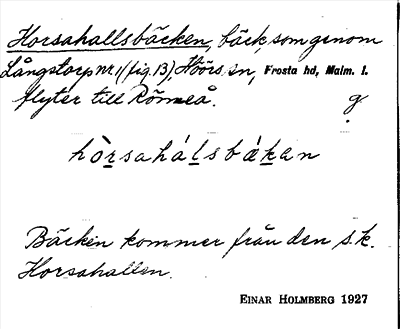 Horsahallsbäcken, bäck, som genom
Långstorp nr. 1 (fig. 13), Höörs sn, Frosta hd, Malm. l.
flyter till Rönneå.
g
hòrsahálsbákan
Bäcken kommer från den s.k.
Horsahallen.
EINAR HOLMBERG 1927